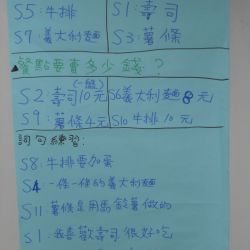 S5:牛排 S1:壽司
S7:義大利麵 S3:薯條
餐點要賣多少錢?
(一盤)
S2 壽司10元 S6義大利麵8元
S9:薯條4元 S10牛排10元
詞句練習:
S8:牛排要加蛋
S4:一條一條的義大利麵
S11薯條是用馬鈴薯做的
S1:我喜歡壽司很好吃